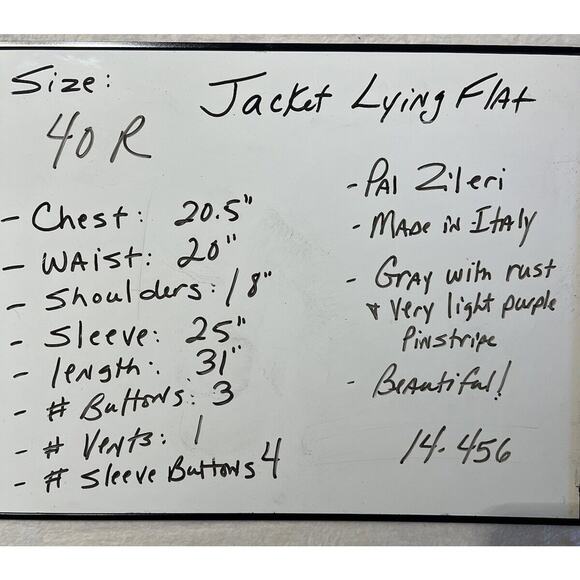 Size:
40 R
Jacket Lying Flat
- Chest: 20.5"
- Waist: 20"
- Shoulders: 18"
- Sleeve: 25"
- length: 31"
- # Buttons: 3
- # Vents: 1
- # Sleeve Buttons 4
- Pal Zileri
- Made in Italy
- Gray with rust
+ Very light purple
Pinstripe
- Beautiful!
14-456